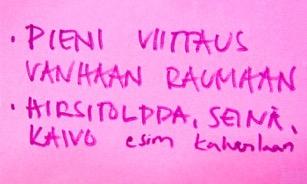 • PIENI VIITTAUS
VANHAAN RAUMAAN
• HIRSITOLPPA, SEINÄ,
KAIVO esim kahvilaan